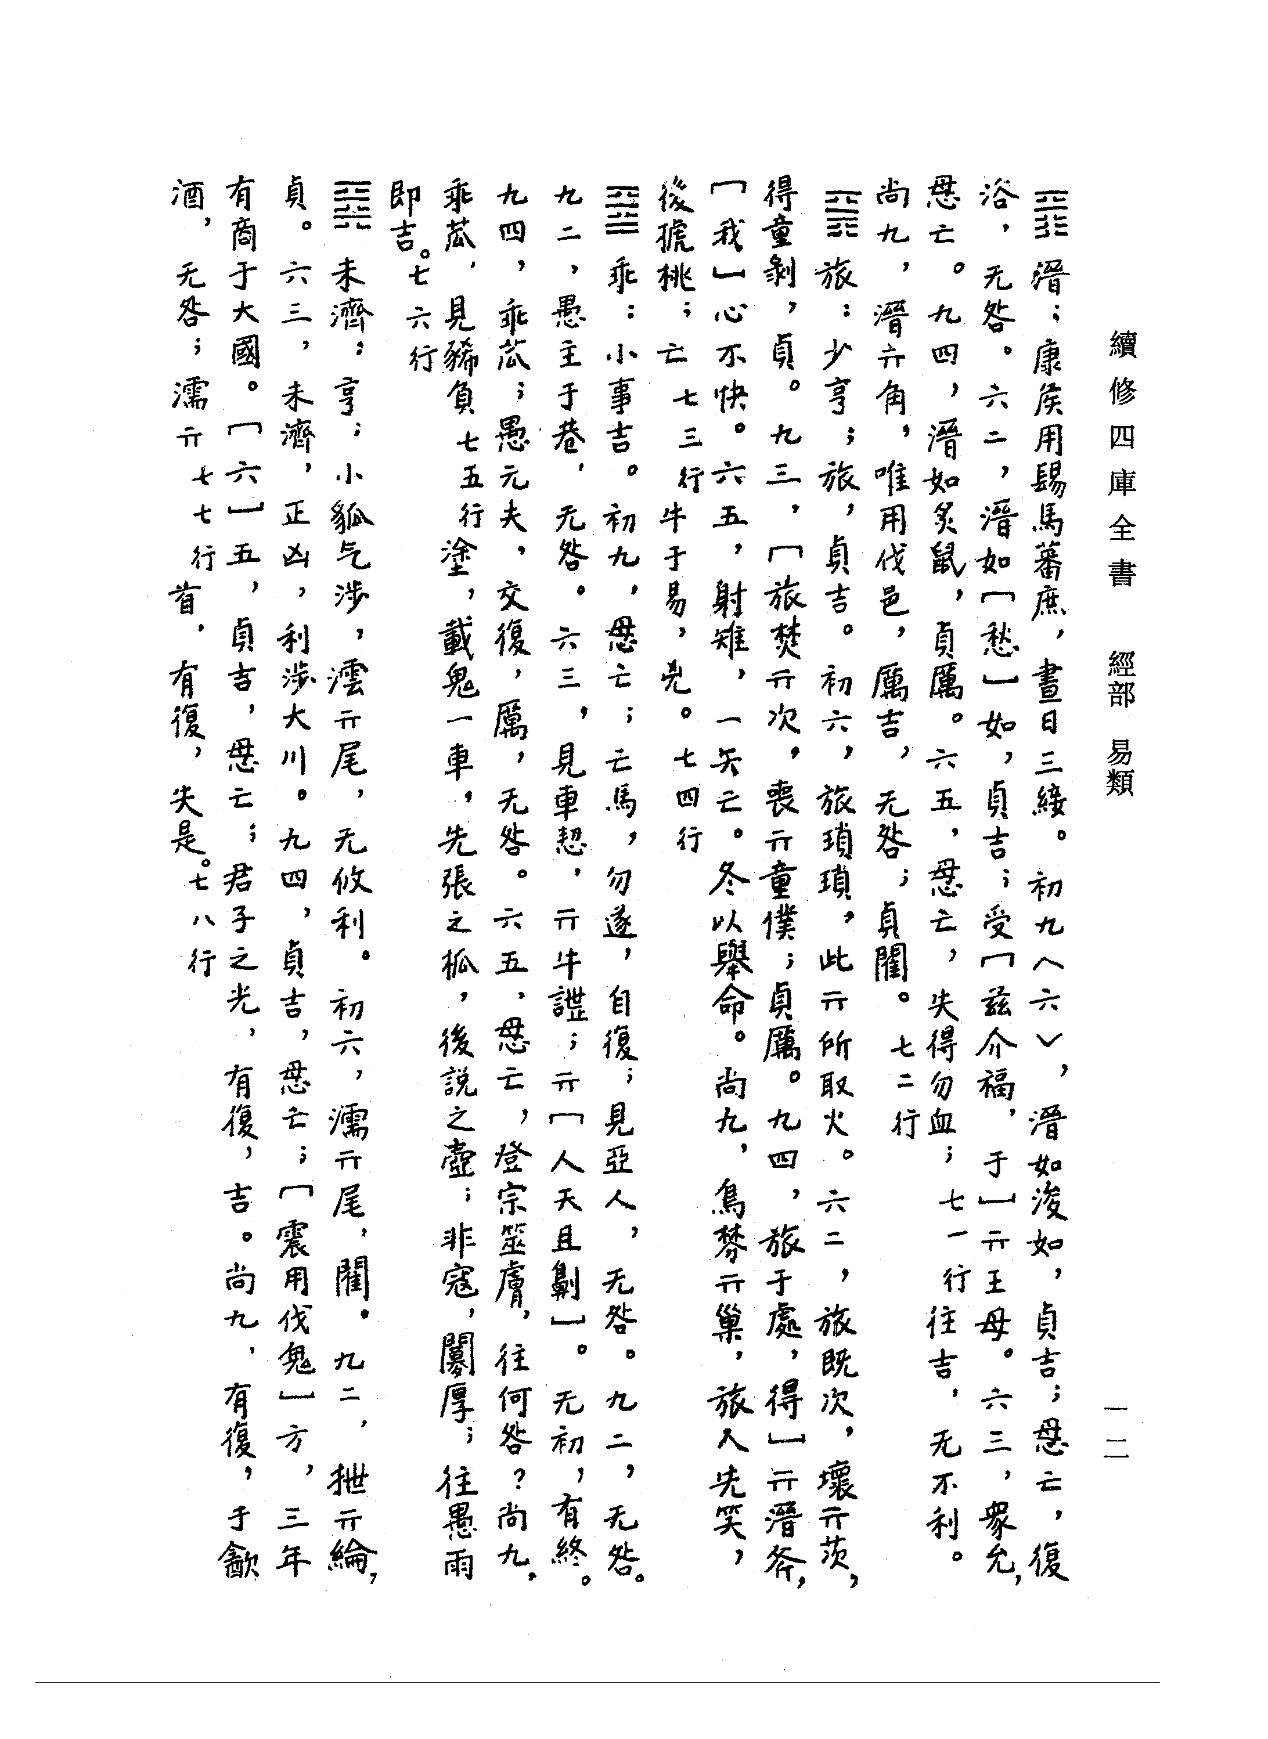 續修四庫全書 經部 易類
一二
䷢溍：康矦用錫馬蕃庶，晝日三緩。初九〈六〉，溍如浚如，貞吉；悬亡，復
浴，无咎。六二，溍如［愁］如，貞吉；受［兹介福，于］亓王母。六三，衆允，
悬亡。九四，溍如炙鼠，貞厲。六五，悬亡，失得勿血；七一行往吉，无不利。
尚九，溍亓角，唯用伐邑，厲吉，无咎；貞閵。七二行
䷷旅：少亨；旅，貞吉。初六，旅瑣瑣，此亓所取火。六二，旅既次，壞亓茨，
得童剝，貞。九三，［旅焚亓次，喪亓童僕；貞厲。九四，旅于處，得］亓溍斧，
［我］心不快。六五，射雉，一矢亡。冬以舉命。尚九，鳥棼亓巢，旅人先笑，
後搋桃；亡七三行牛于易，兇。七四行
䷥乖：小事吉。初九，悬亡；亡馬，勿遂，自復；見亞人，无咎。九二，无咎。
九二，愚主于巷，无咎。六三，見車恝，亓牛諜；亓［人天且劓］。无初，有終。
九四，乖苽；愚元夫，交復，厲，无咎。六五，悬亡，登宗筮膚，往何咎？尚九，
乖苽，見豨負七五行塗，載鬼一車，先張之柧，後説之壺；非寇，闅厚；往愚雨
即吉。七六行
䷿未濟：亨；小狐气涉，澐亓尾，无攸利。初六，濡亓尾，閵。九二，抴亓綸，
貞。六三，未濟，正凶，利涉大川。九四，貞吉，悬亡；［震用伐鬼］方，三年
有商于大國。［六］五，貞吉，悬亡；君子之光，有復，吉。尚九，有復，于歙
酒，无咎；濡亓七七行首，有復，失是。七八行